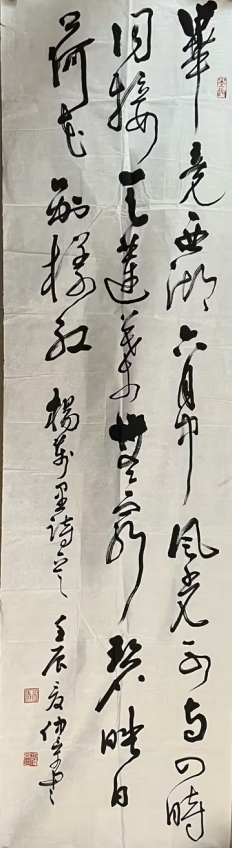 畢竟西湖六月中風光不与四時
同接天蓮葉無窮碧映日
荷花別樣紅 楊萬里詩 壬辰夏